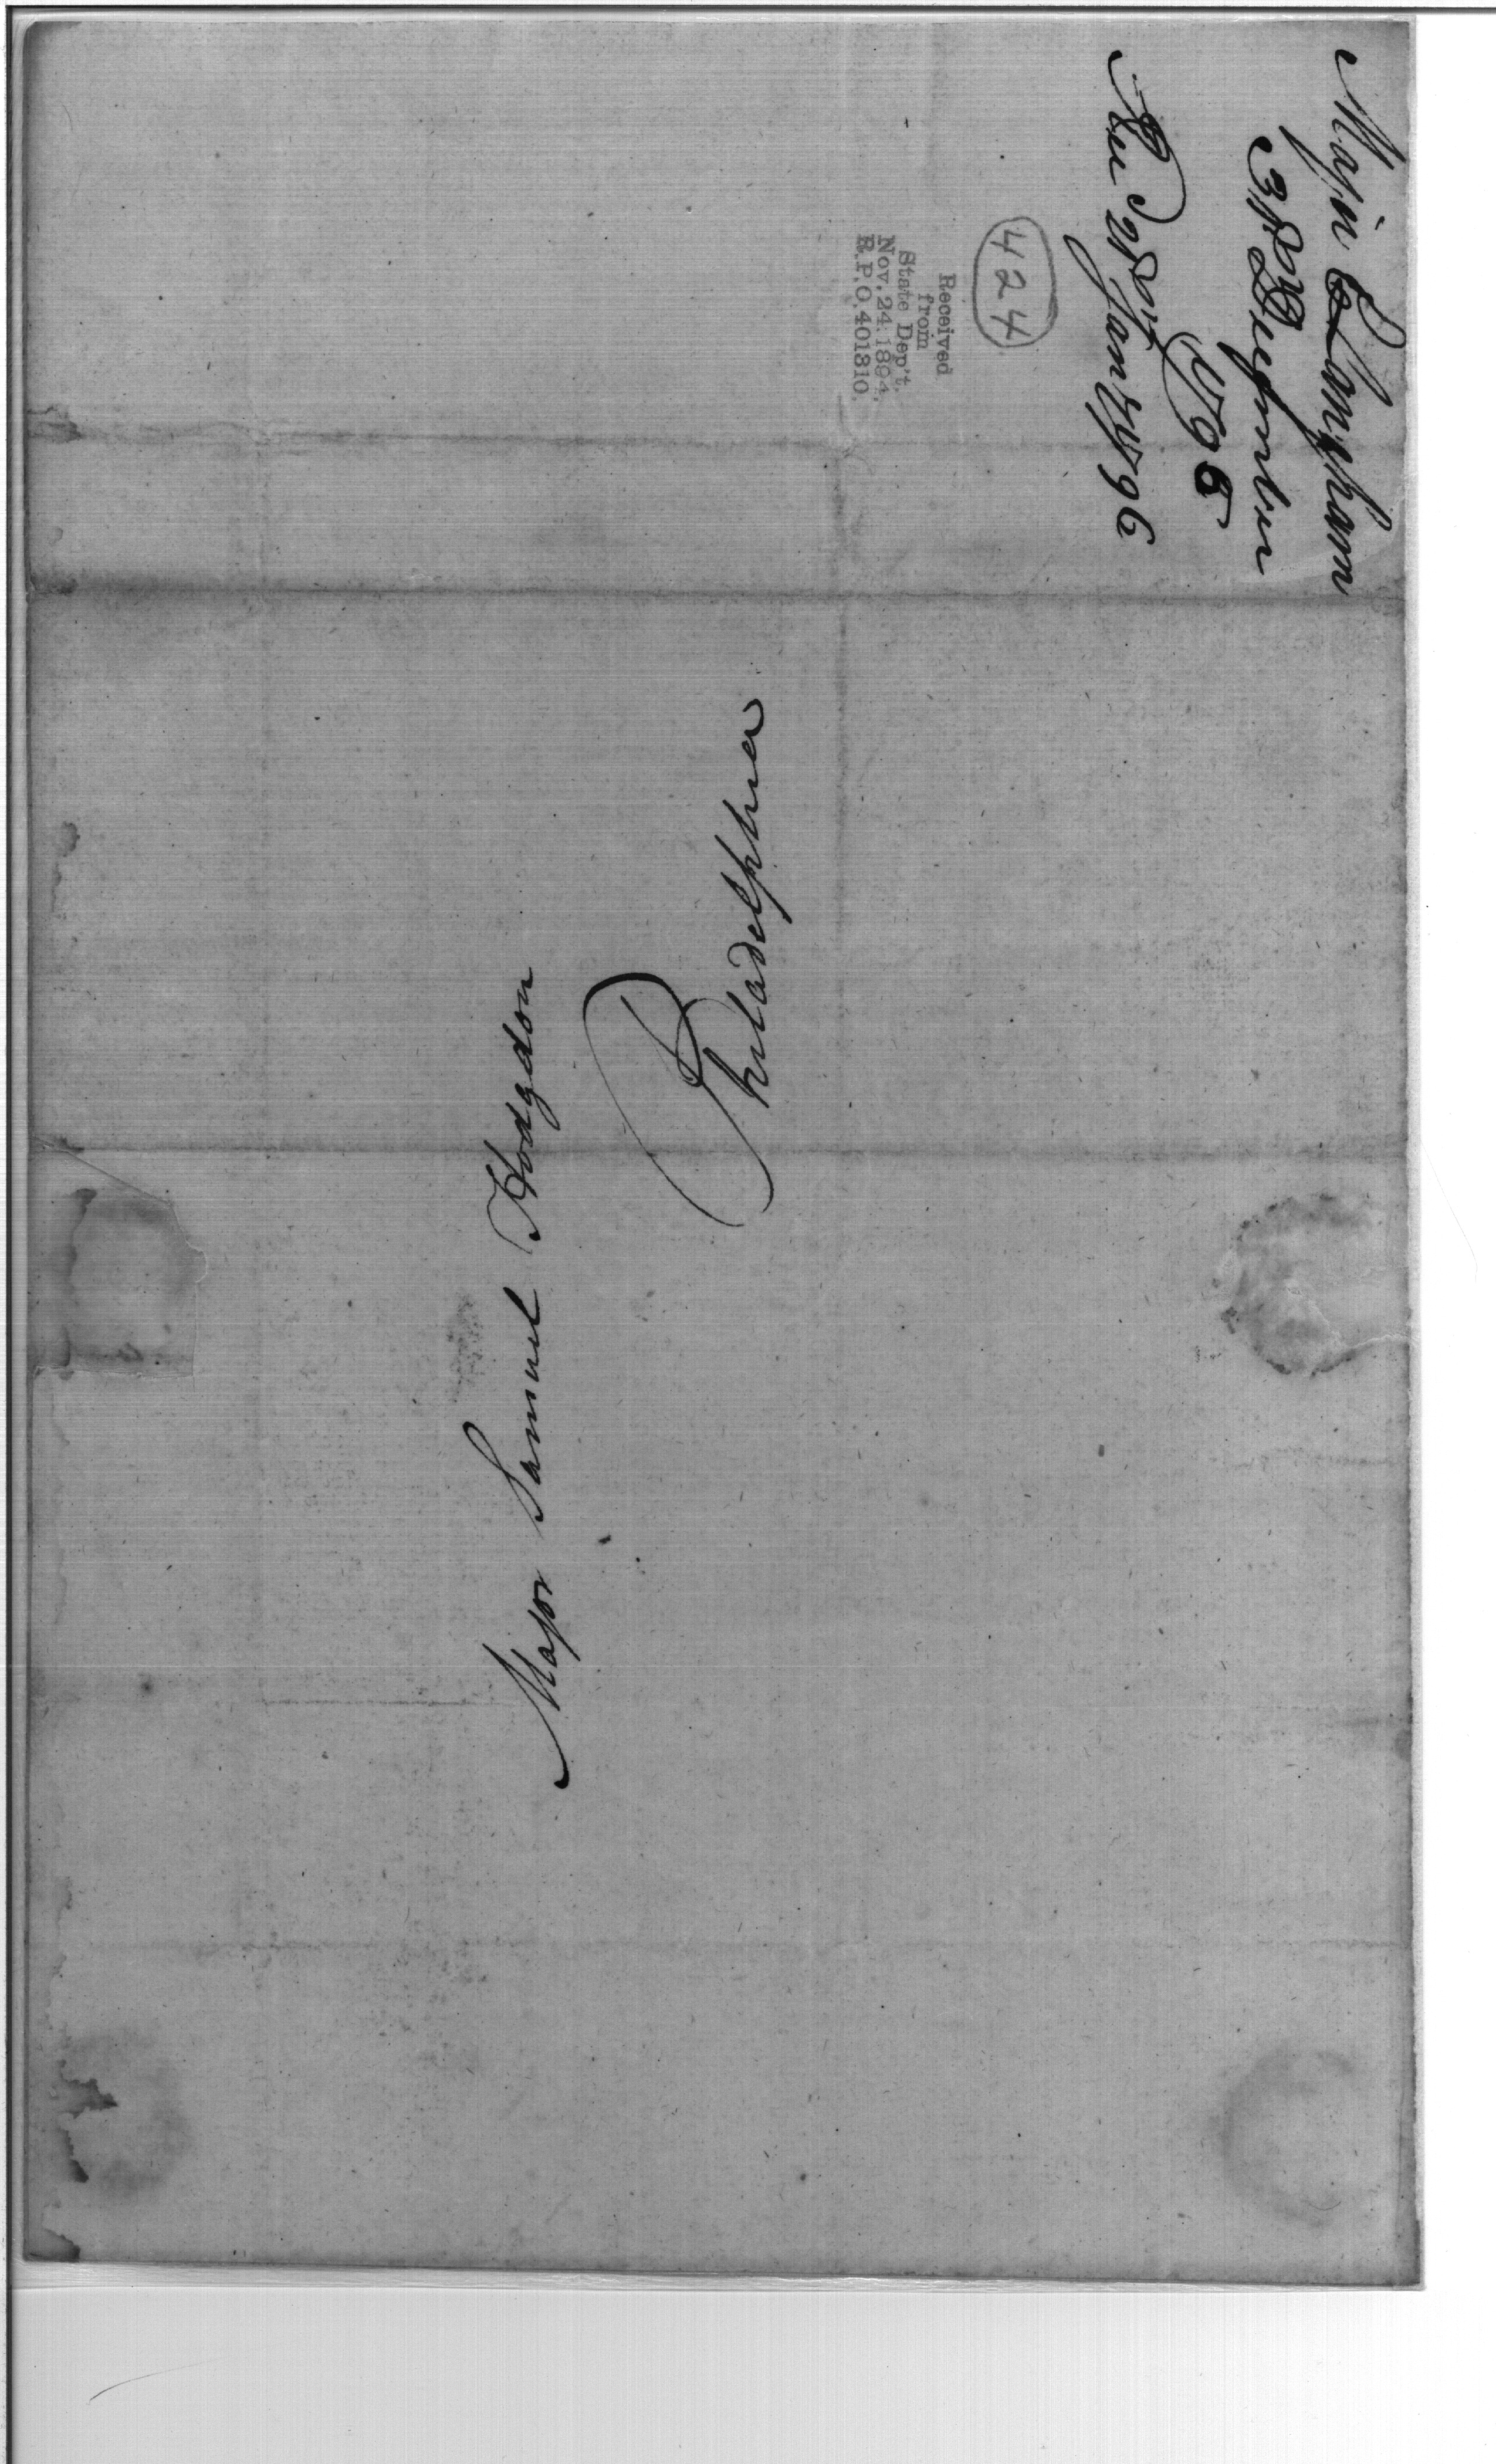 Major Langham
31st December
1795
Rec'd 21st Jany 1796
424
Received
from
State Dep't.
Nov. 24. 1894.
R.P.O. 401810.
Major Samuel Hodgdon
Philadelphia